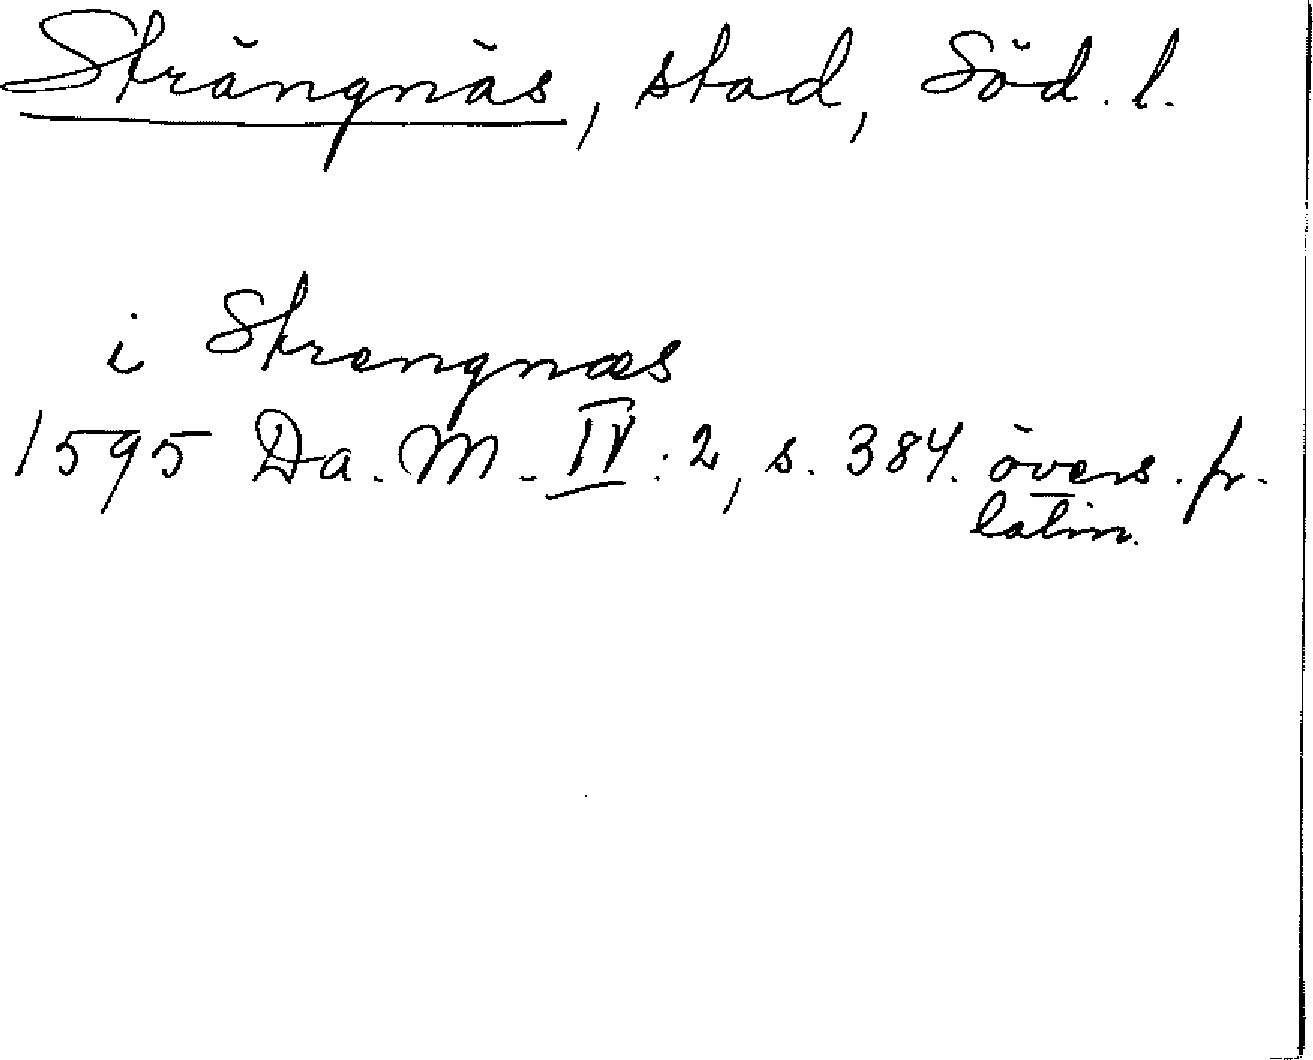 Strängnäs, stad, Söd. l.
i Strengnæs
1595 Da. M. IV:2, s. 384. övers. fr.
latin.